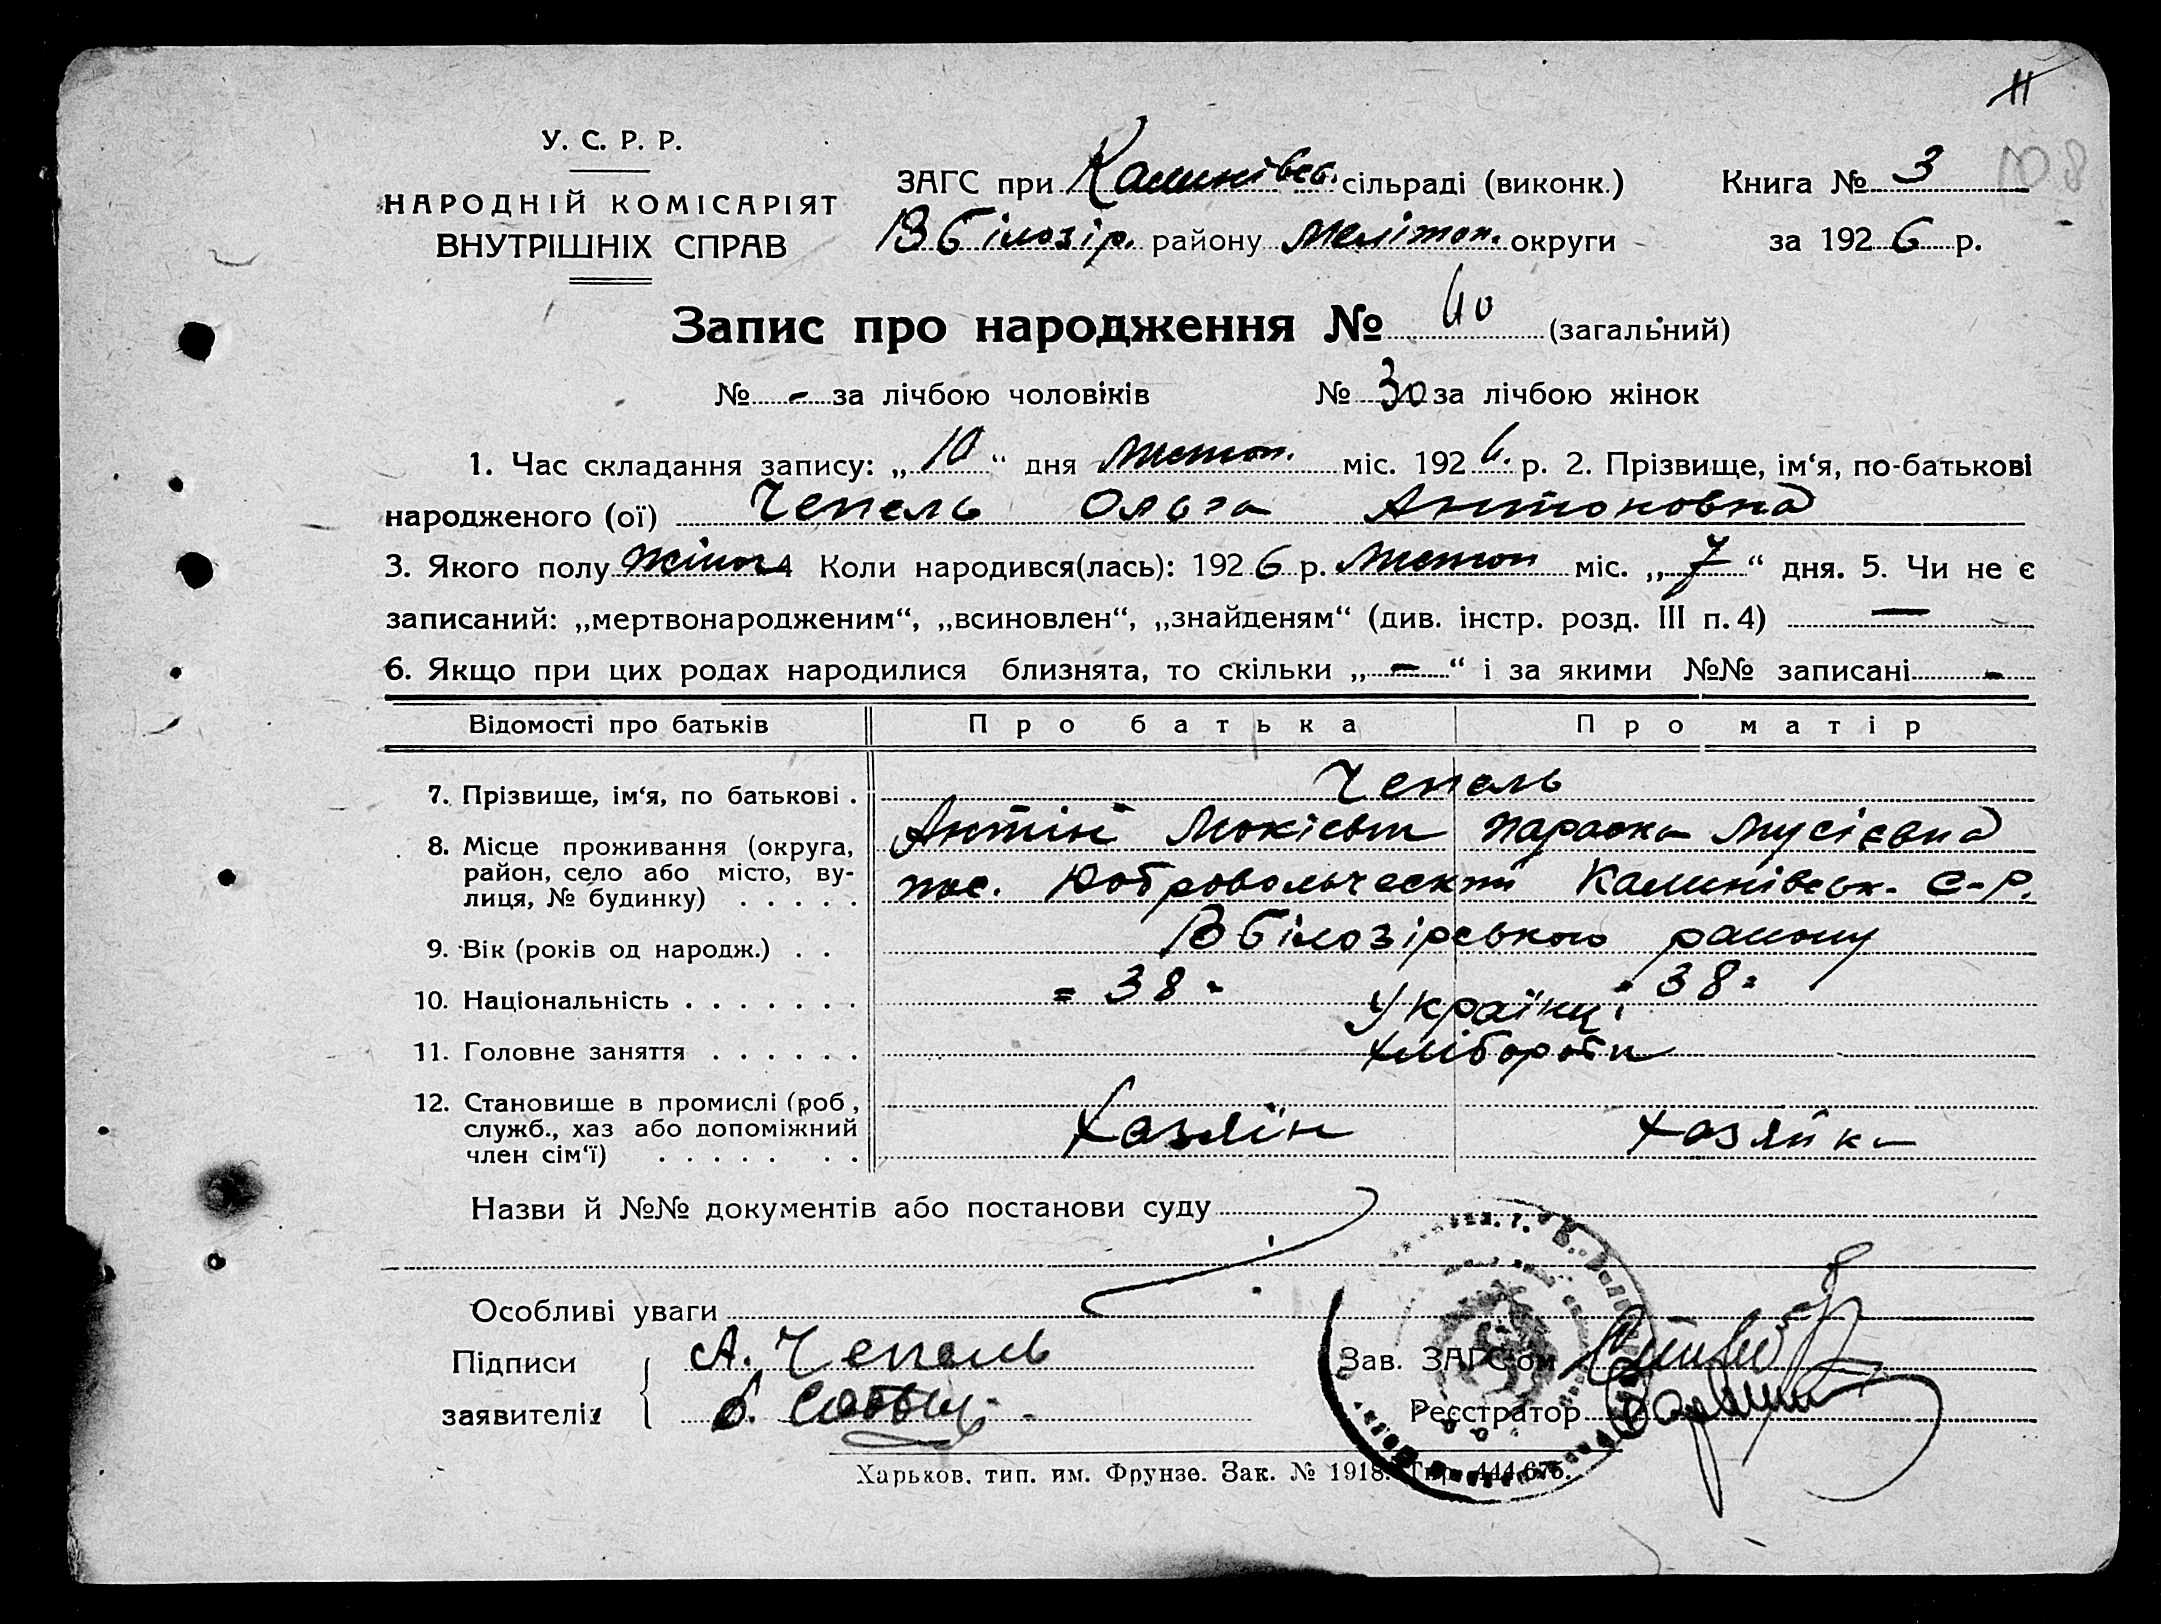 11
108
У. С. Р. Р.
НАРОДНІЙ КОМІСАРІЯТ
ВНУТРІШНІХ СПРАВ
ЗАГС при Калинівсь. сільраді (виконк.)
Книга № 3
В Білозір. району Меліт оп. округи
за 1926 р.
Запис про народження № 60 (загальний)
№ - за лічбою чоловіків № 30 за лічбою жінок
1. Час складання запису: „10“ дня Листоп. міс. 1926. р. 2. Прізвище, ім‘я, по-батькові
народженого (ої) Чепель Ольга Антоновна
3. Якого полу жіноч 4 Коли народився(лась): 1926 р. Листоп міс. „7“ дня. 5. Чи не є
записаний: „мертвонародженим“, „всиновлен“, „знайденям“ (див. інстр. розд. III п. 4) —
6. Якщо при цих родах народилися близнята, то скільки „-“ і за якими №№ записані -
Відомості про батьків Про батька Про матір
7. Прізвище, ім‘я, по батькові .
Чепель
Антін Мокієвич Параска Мусієвна
8. Місце проживання (округа,
район, село або місто, ву-
лиця, № будинку) . . . . .
пос. Добровольческий Калинівськ. С-Р.
В Білозірського району
9. Вік (років од народж.) . .
= 38 = = 38 =
10. Національність . . . . . . .
Українці
11. Головне заняття . . . . . .
Хлібороби
12. Становище в промислі (роб,
служб., хаз або допоміжний
член сім‘ї) . . . . . . .
Хазяїн Хазяйка
Назви й №№ документів або постанови суду
Особливі уваги
Підписи
заявителів
А. Чепель
Зав. ЗАГС‘ом
Реєстратор
Харьков, тип. им. Фрунзе. Зак. № 1918. Тир. 444.675.